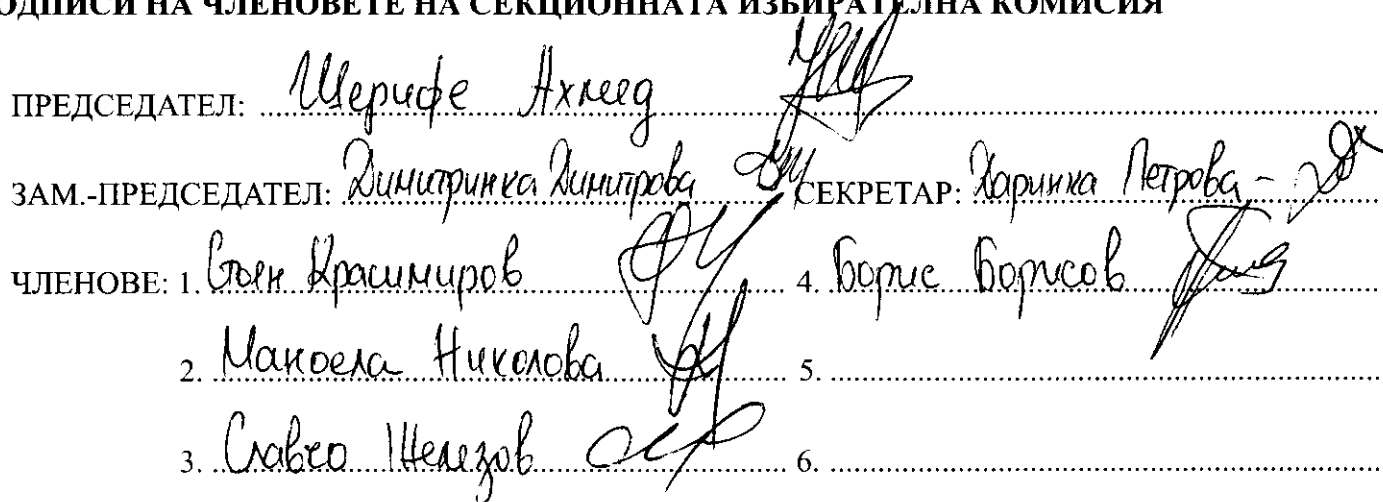 ПОДПИСИ НА ЧЛЕНОВЕТЕ НА СЕКЦИОННАТА ИЗБИРАТЕЛНА КОМИСИЯ
ПРЕДСЕДАТЕЛ: Шерифе Ахмед
ЗАМ.-ПРЕДСЕДАТЕЛ: Димитринка Димитрова СЕКРЕТАР: Петрова -
ЧЛЕНОВЕ: 1. Стоян Красимиров 4. Борис Борисов
2. Маноела Николова 5.
3. Славчо Железов 6.